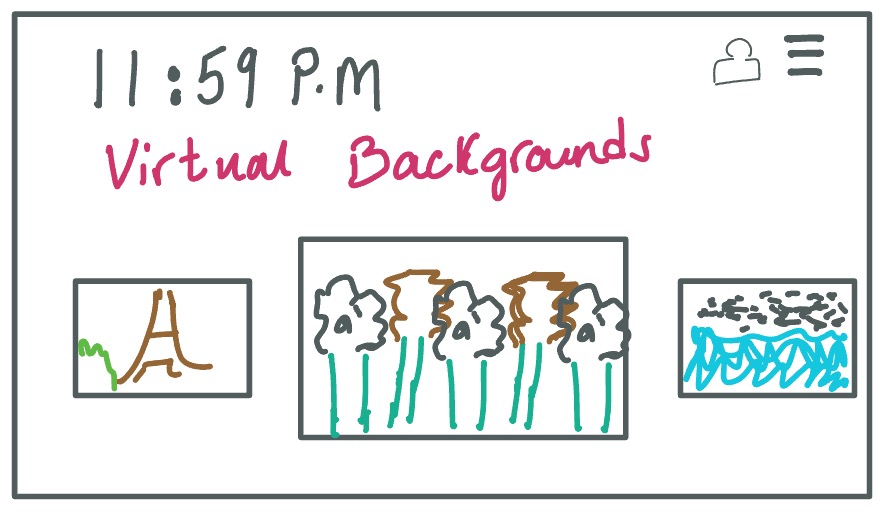 11:59 P.M
Virtual Backgrounds